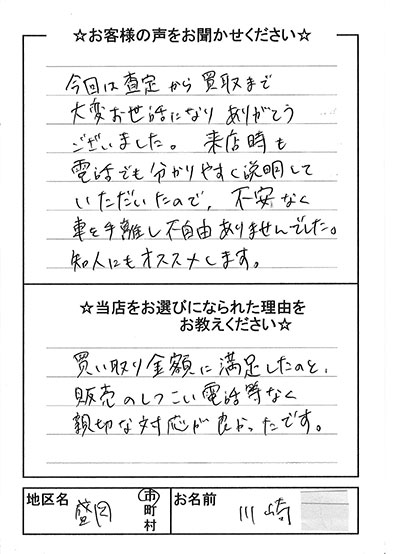 ☆お客様の声をお聞かせください☆
今回は査定から買取まで
大変お世話になりありがとう
ございました。来店時も
電話でも分かりやすく説明して
いただいたので、不安なく
車を手離し不自由ありませんでした。
知人にもオススメします。
☆当店をお選びになられた理由を
お教えください☆
買い取り金額に満足したのと、
販売のしつこい電話等なく
親切な対応が良かったです。
地区名 盛岡 市町村 お名前 川崎